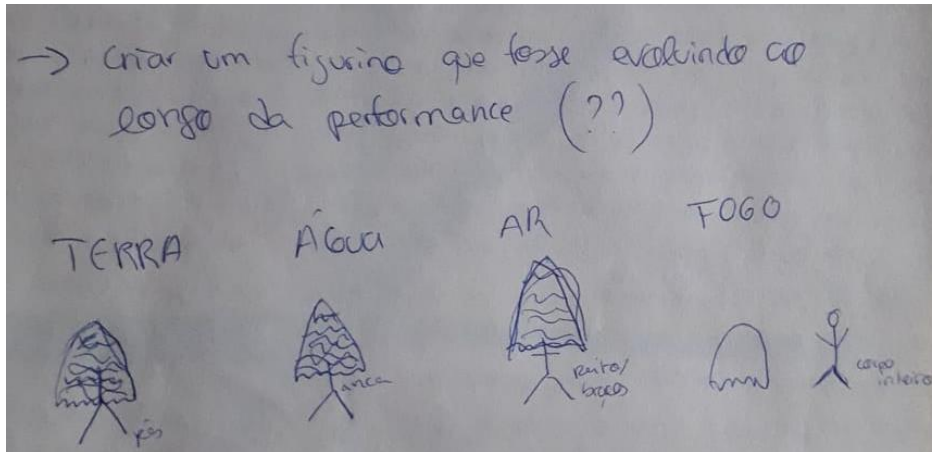 → criar um figurino que fosse evoluindo ao
longo da performance (??)
TERRA ÁGUA AR FOGO
pés anca peito/ corpo
braços inteiro